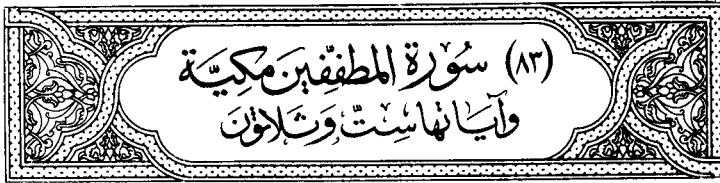 (٨٣) سُورَة المطفّفِين مَكيَّة
وآيَاتها سِتّ وَثَلاثون